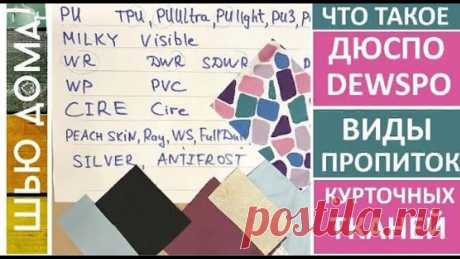 ШЬЮ ДОМА!
PU TPU, PUUltra, PUlight, PU3, P
MILKY Visible
WR DWR SDWR
WP PVC
CIRE Cire
PEACH SKIN, Ray, WS, FullDull
SILVER, ANTIFROST
ЧТО ТАКОЕ
ДЮСПО
DEWSPO
ВИДЫ
ПРОПИТОК
КУРТОЧНЫХ
ТКАНЕЙ
postila.ru